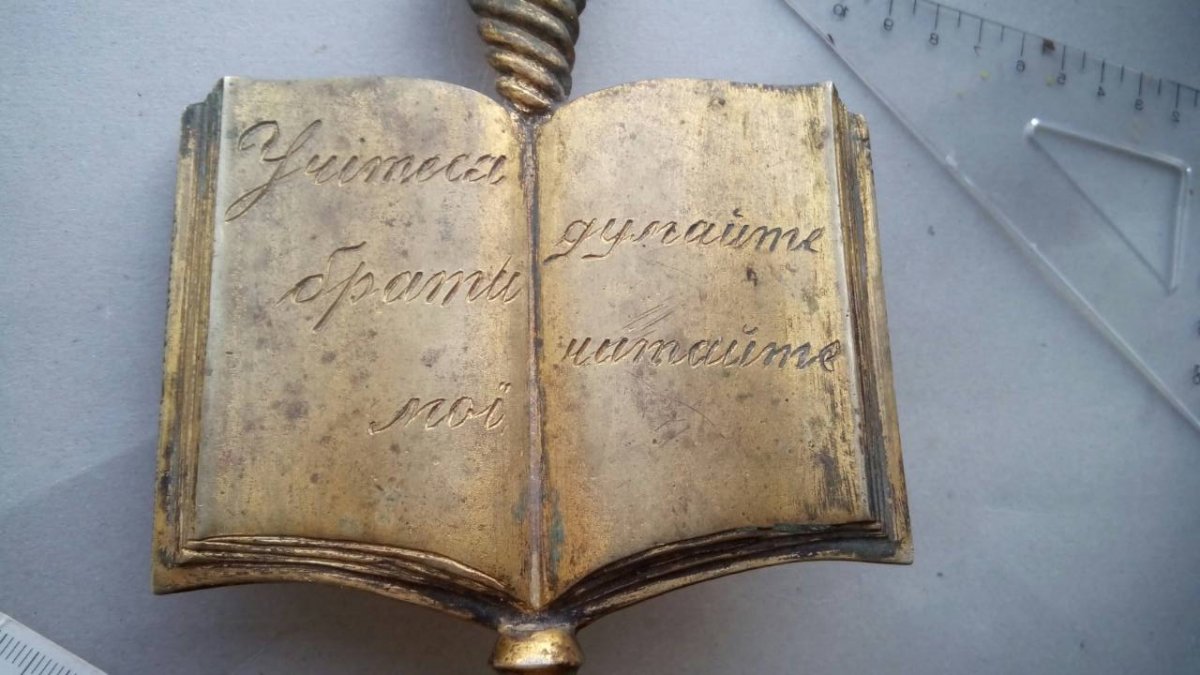 Учітеся
брати
мої
думайте
читайте
10 9 8 7 6 5 4 3 2